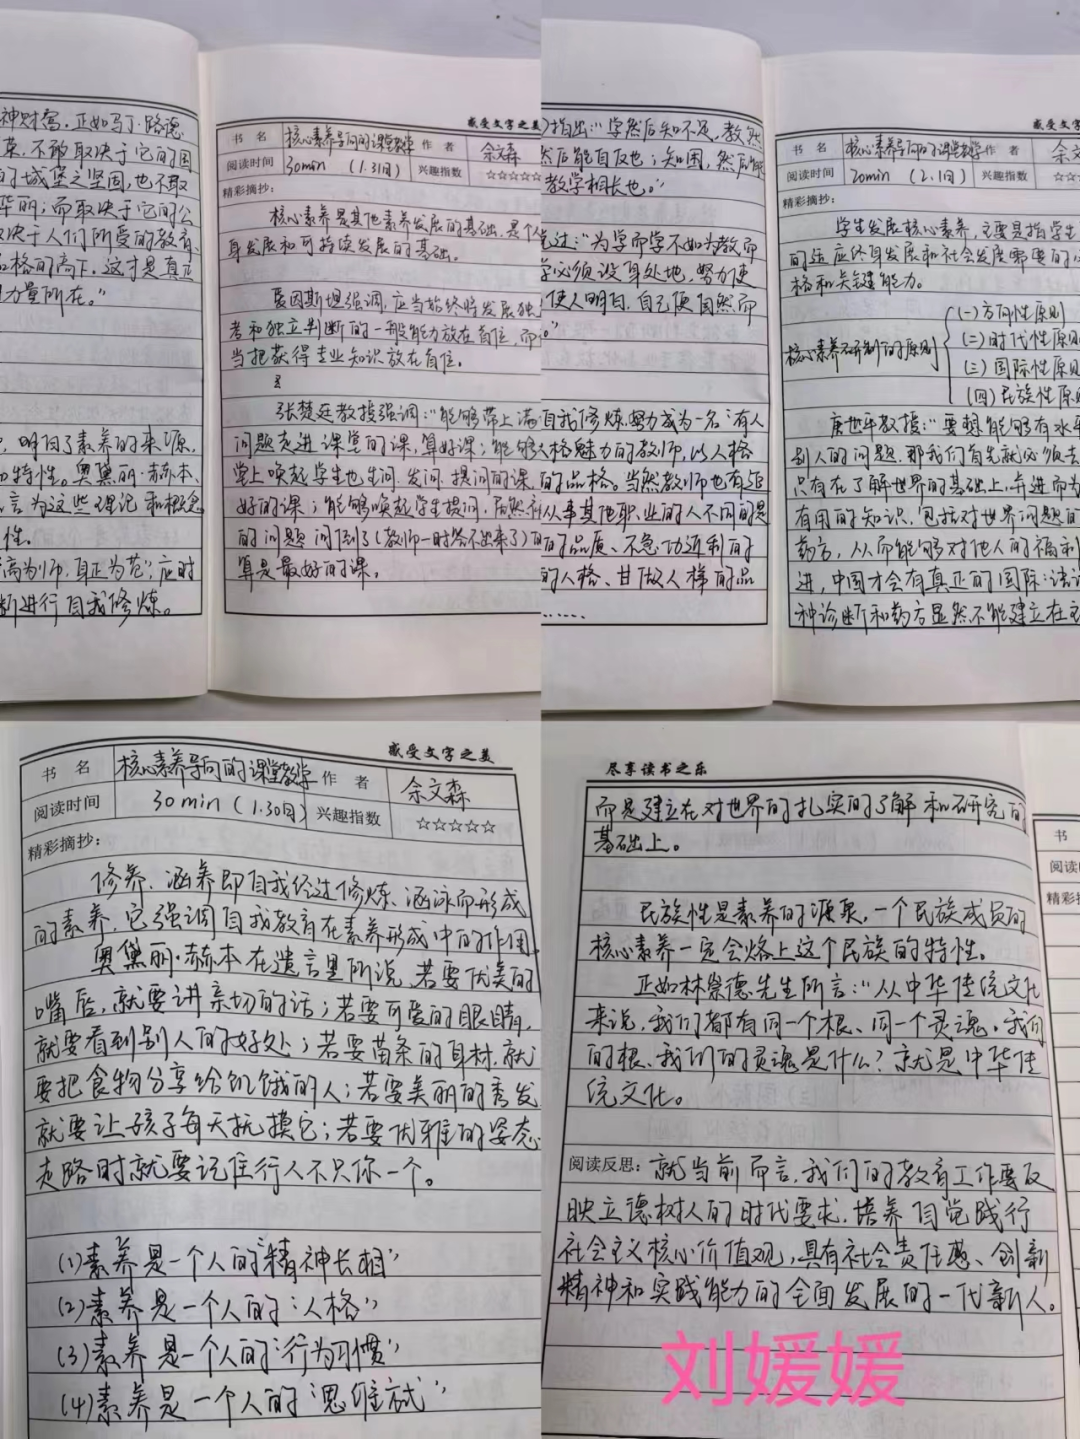 神财富。正如马丁·路德
不敢取决于它的国
的城堡之坚固,也不取
华丽;而取决于它的公
决于人们所受的教育、
格的高下。这才是真正
力量所在。”
明白了素养的来源,
特性。奥黛丽·赫本、
言为这些理论和概念
性。
高为师,身正为范”,应时
断进行自我修炼。
感受文字之美
书 名 核心素养导向的课堂教学 作 者 余文森
阅读时间 30min (1.31日) 兴趣指数 ☆☆☆☆☆
精彩摘抄:
核心素养是其他素养发展的基础,是个人
身发展和可持续发展的基础。
爱因斯坦强调,应当始终将发展独
考和独立判断的一般能力放在首位,而
当把获得专业知识放在首位。
张楚廷教授强调:“能够带上满
问题走进课堂的课,算好课;能够
堂上唤起学生也生问、发问、提问的课,
好的课;能够唤起学生提问,居然
的问题问倒了(教师一时答不出来了)的
算是最好的课。
指出:“学然后知不足,教然
然后能自反也;知困,然后能
教学相长也。”
过:“为学而学不如为教而
学必须设身处地,努力使
使人明白,自己便自然而
自我修炼,努力成为一名“有人
人格魅力的教师,以人格
的品格。当然教师也有
从事其他职业的人不同的是
的品质、不急功近利的
的人格、甘做人梯的品
......
感受文字
书 名 核心素养导向的课堂教学 作 者 余文
阅读时间 20min (2.1日) 兴趣指数 ☆☆
精彩摘抄:
学生发展核心素养,主要是指学生
的适应终身发展和社会发展需要的
格和关键能力。
核心素养研制的原则
(一)方向性原则
(二)时代性原则
(三)国际性原则
(四)民族性原则
庚世平教授:“要想能够有水平
别人的问题,那我们首先就必须去
只有在了解世界的基础上,并进而为
有用的知识,包括对世界问题的
药方,从而能够对他人的福利
进,中国才会有真正的国际
种诊断和药方显然不能建立在
感受文字之美
书 名 核心素养导向的课堂教学 作 者 余文森
阅读时间 30min (1.30日) 兴趣指数 ☆☆☆☆☆
精彩摘抄:
修养、涵养即自我经过修炼、涵泳而形成
的素养,它强调自我教育在素养形成中的作用。
奥黛丽·赫本在遗言里所说,若要优美的
嘴唇,就要讲亲切的话;若要可爱的眼睛,
就要看到别人的好处;若要苗条的身材,就
要把食物分享给饥饿的人;若要美丽的秀发
就要让孩子每天抚摸它;若要优雅的姿态,
走路时就要记住行人不只你一个。
(1)素养是一个人的“精神长相”
(2)素养是一个人的“人格”
(3)素养是一个人的“行为习惯”
(4)素养是一个人的“思维
尽享读书之乐
而是建立在对世界的扎实的了解和研究的
基础上。
民族性是素养的源泉,一个民族成员的
核心素养一定会烙上这个民族的特性。
正如林崇德先生所言:“从中华传统文化
来说,我们都有同一个根、同一个灵魂。我们
的根、我们的灵魂是什么?就是中华传
统文化。
阅读反思:就当前而言,我们的教育工作要反
映立德树人的时代要求,培养自觉践行
社会主义核心价值观,具有社会责任感、创新
精神和实践能力的全面发展的一代新人。
书
阅读
精彩
刘媛媛